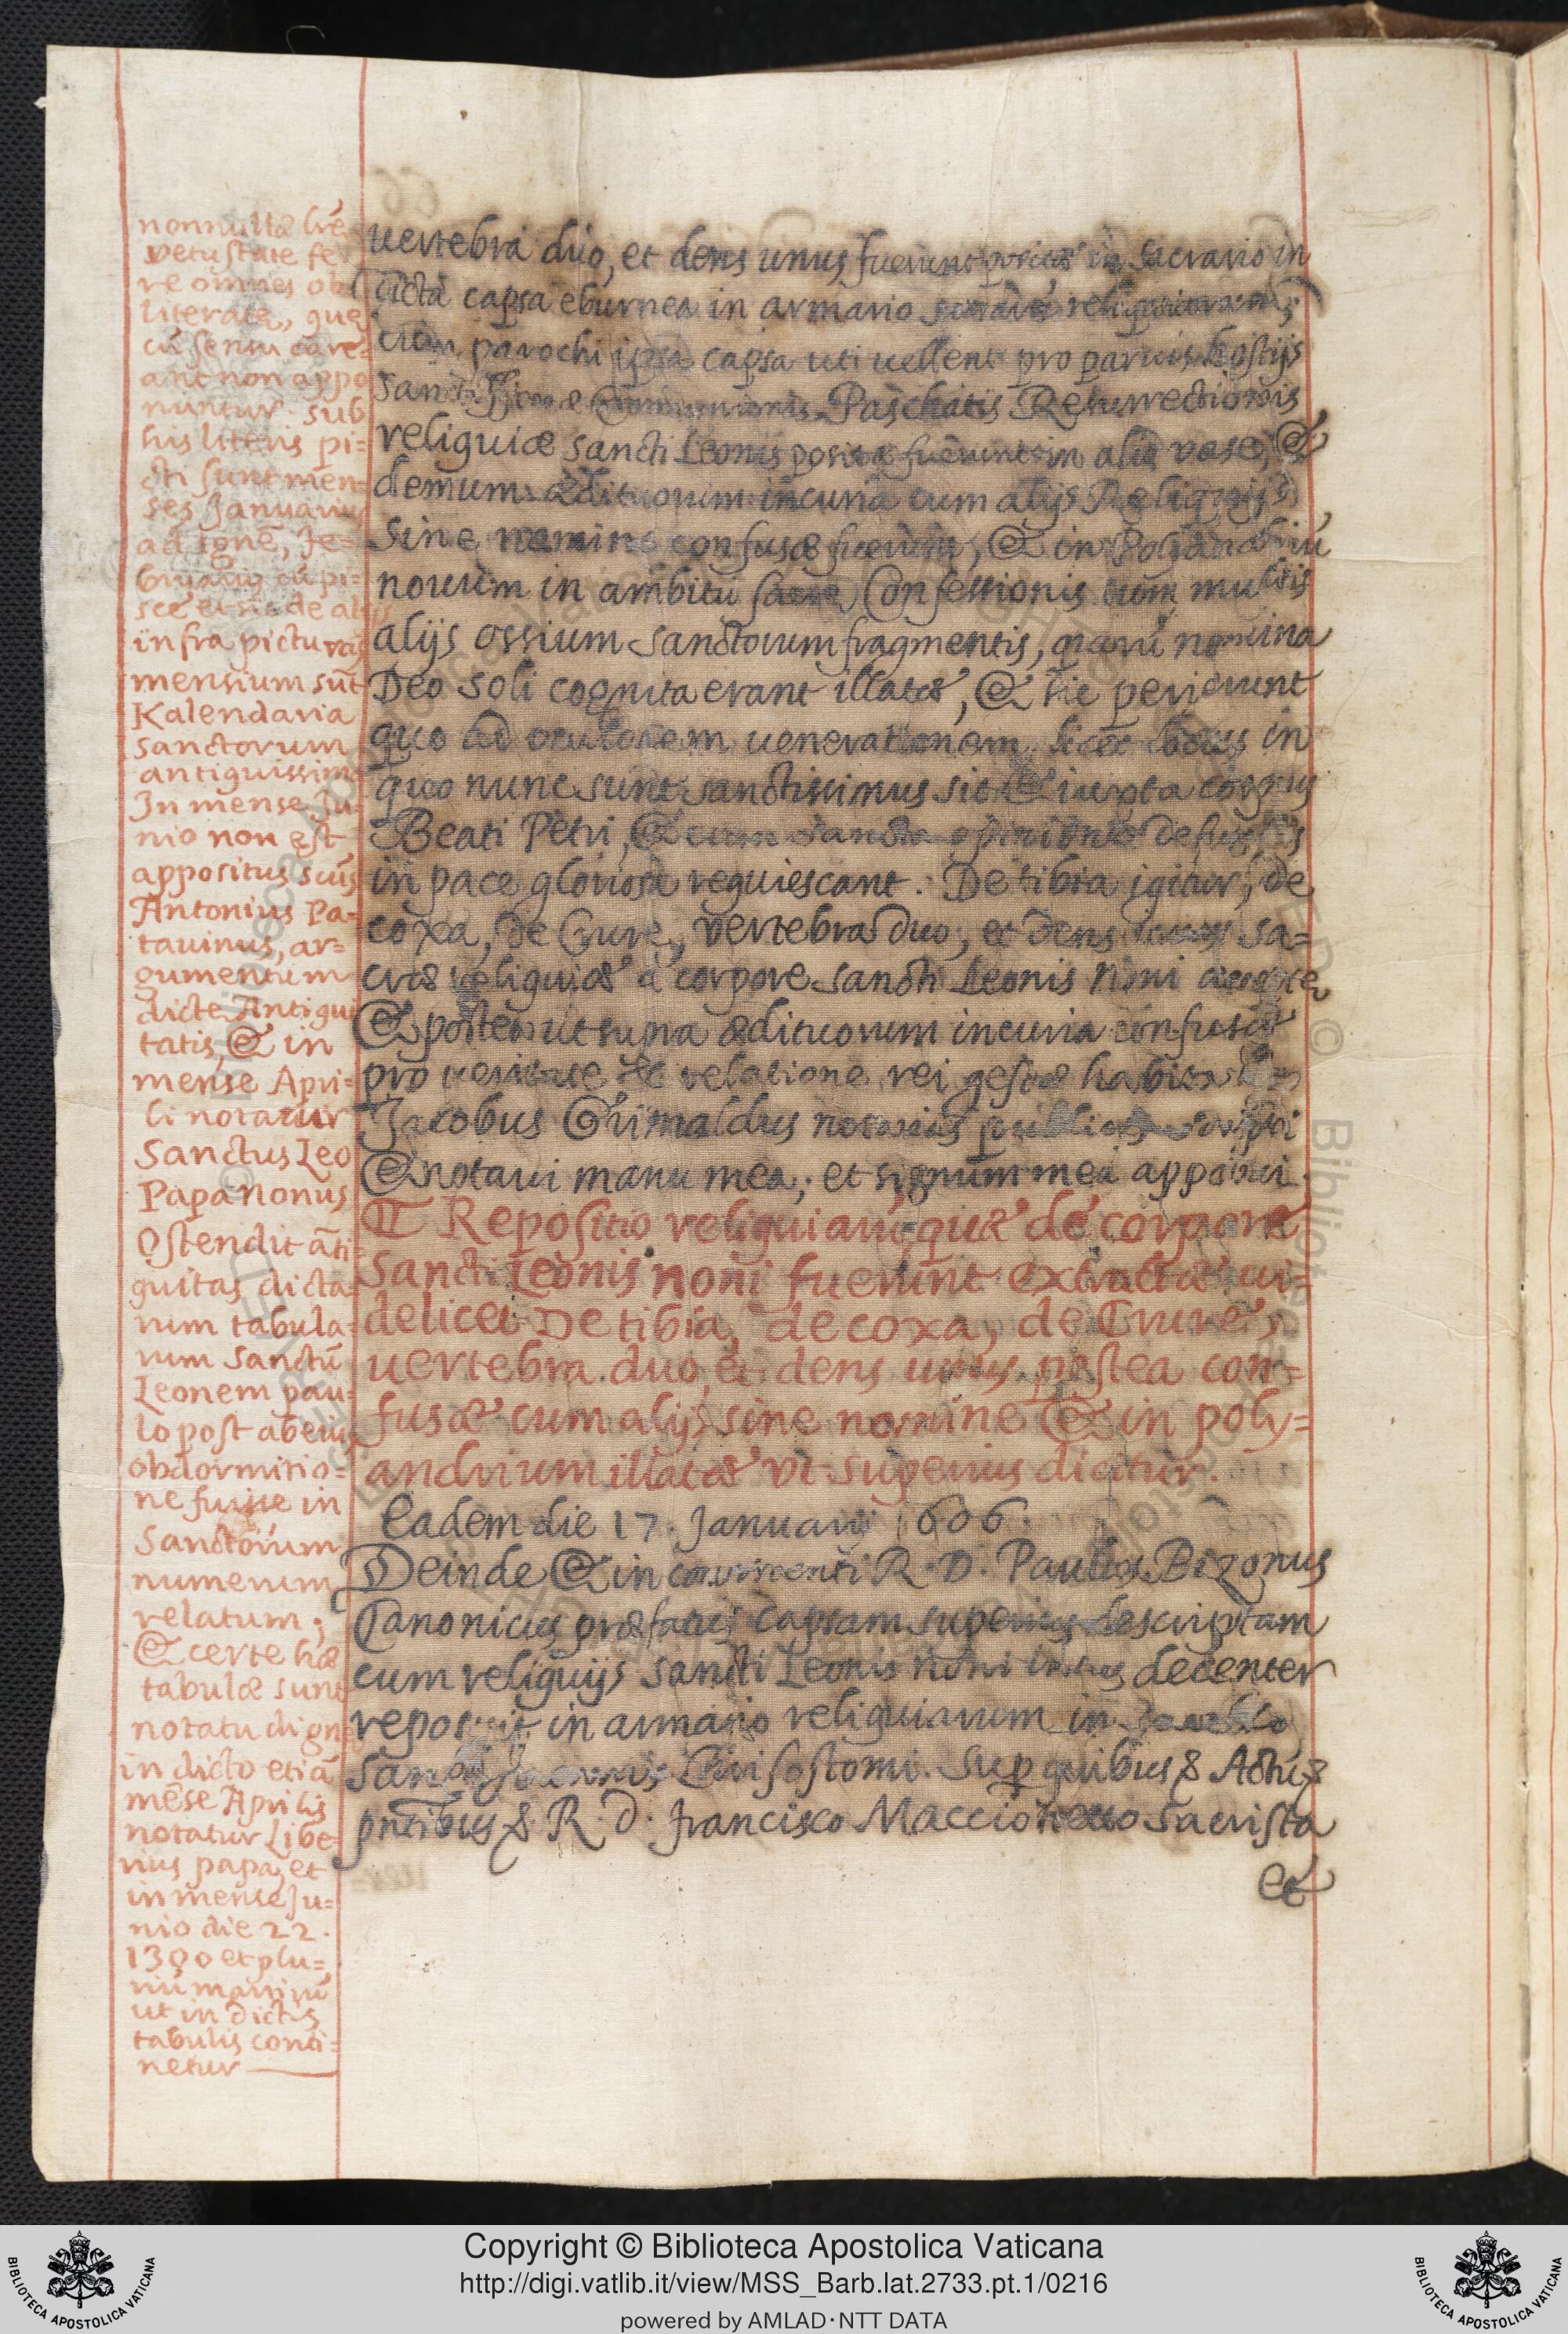 nonnullæ lr̃e
vetustate fe
re omnes ob
literatę, quę
cũ sensu care=
ant non appo
nuntur. sub
his literis pi=
cti sunt men=
ses Januarius
ad ignẽ, Fe=
bruarius cũ pi=
sce et sic de alijs
infra picturas
mensium sũt
Kalendaria
sanctorum
antiquissima
In mense Ju=
nio non est
appositus scũs
Antonius Pa=
tauinus, ar=
gumentum
dicte Antiqui
tatis, & in
mense Apri=
li notatur
Sanctus Leo
Papa Nonus
Ostendit ãti=
quitas dicta=
rum tabula=
rum Sanctũ
Leonem pau=
lo post abeius
obdormitio=
ne fuisse in
Sanctorum
numerum
relatum;
& certe hæ
tabulæ sunt
notatu dignę
in dicto etiã
mẽse Aprilis
notatur Libe=
rius papa, et
in mense Ju=
nio die 22.
1300 et plu=
riũ martirũ
ut in dictis
tabulis conti=
netur
uertebra duo, et dens unus fuerunt positæ in Sacrario in
dicta capsa eburnea in armario reliquiarum;
cum parochi ipsa capsa uti uellent pro paruis hostijs
Paschatis Resurrectionis
reliquiæ sancti Leonis positæ fuerunt in alio vase, &
demum ædituorum incuria cum alijs Reliquijs
sine nomine confusæ fuerunt, & in Poliandriũ
nouum in ambitu sacre Confessionis cum multis
alijs ossium sanctorum fragmentis, quorũ nomina
Deo soli cognita erant illatæ, & sic perierunt
quo ad ocularem uenerationem, licet locus in
quo nunc sunt sanctissimus sit & iuxta corpus
Beati Petri, & cum sancta opinione defunctis
in pace gloriosa requiescant. De tibia igitur, de
coxa, de Crure, vertebra duo, et dens unus sa=
cræ reliquiæ à corpore sancti Leonis Noni
& postea ut supra ædituorum incuria confusæ
pro ueritate & relatione rei gestæ habita
Jacobus Grimaldus notarius publicus scripsi
& notaui manu mea, et signum meũ apposui
Repositio reliquiarũ, quæ de corpore
Sancti Leonis noni fuerunt extractæ ui=
delicet De tibia, de coxa, de Crure,
uertebra duo, et dens unus postea con=
fusæ cum alijs sine nomine & in poly=
andrium illatæ vt superius dicitur.
Eadem die 17. Januarij 1606.
Deinde & in continenti R. D. Paulus Bizonus
Canonicus præfatus capsam superius descriptam
cum reliquijs Sancti Leonis noni intus decenter
reposuit in armario reliquiarum in
Sancti Joannis Chrisostomi. Sup quibus & Actus
pñtibus & R. D. Francisco Maccionetto Sacrista
et
Copyright © Biblioteca Apostolica Vaticana
http://digi.vatlib.it/view/MSS_Barb.lat.2733.pt.1/0216
powered by AMLAD·NTT DATA
BIBLIOTECA APOSTOLICA VATICANA
BIBLIOTECA APOSTOLICA VATICANA